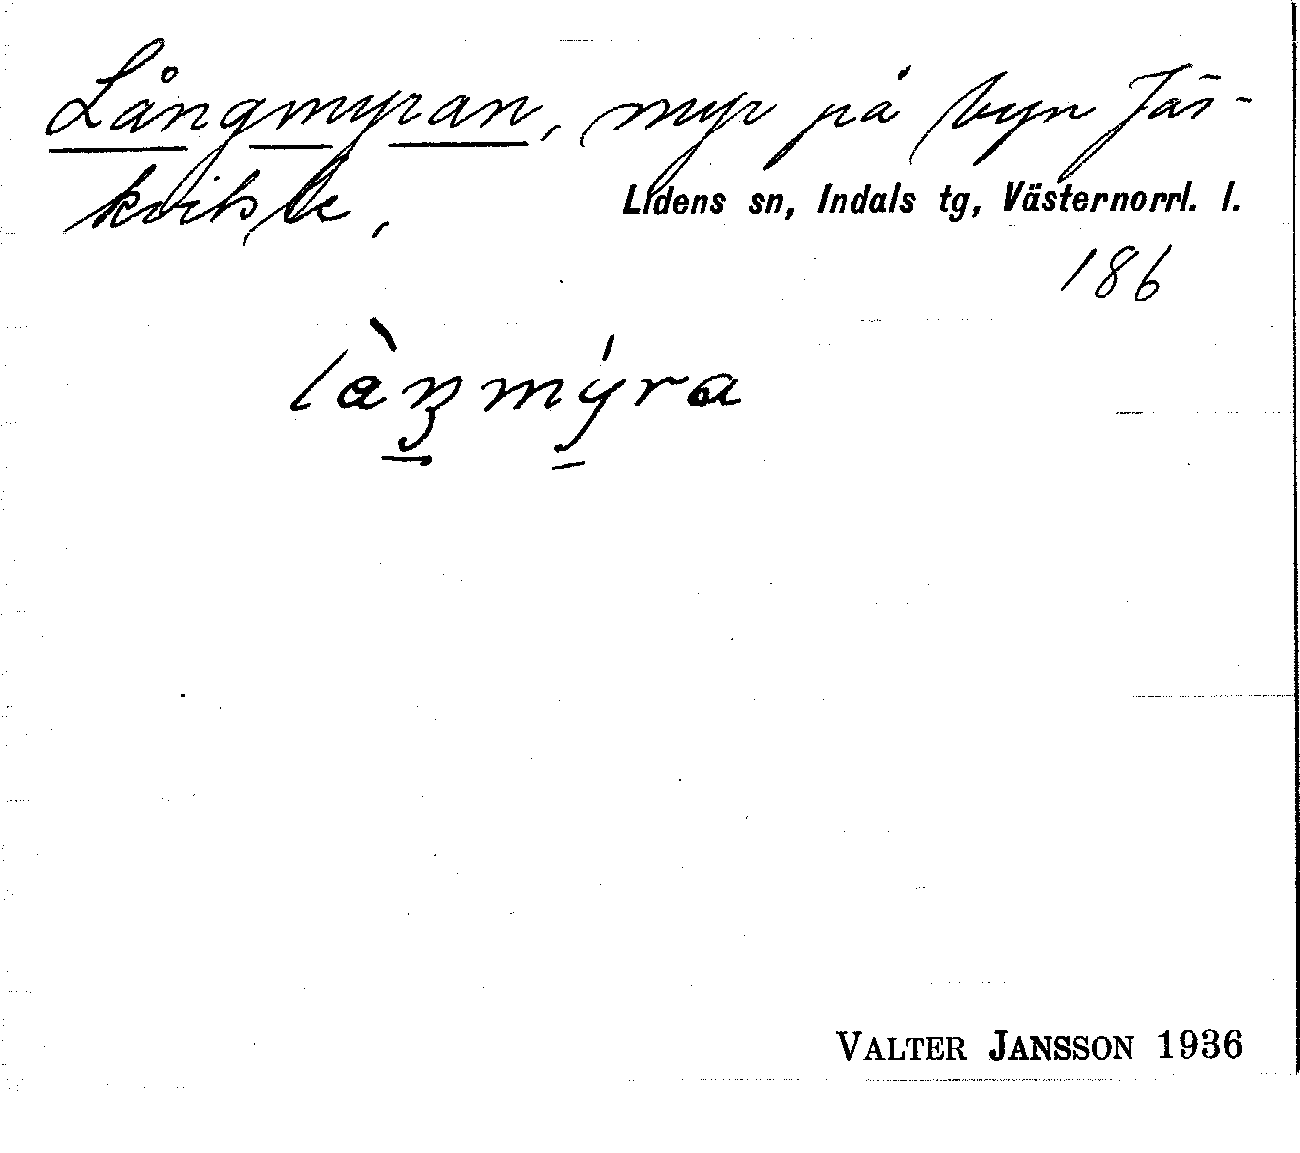 Långmyran, myr på byn Jär-
kvitsle,
Lidens sn, Indals tg, Västernorrl. l.
186
VALTER JANSSON 1936